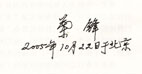 蔡锋
2005年10月22日于北京